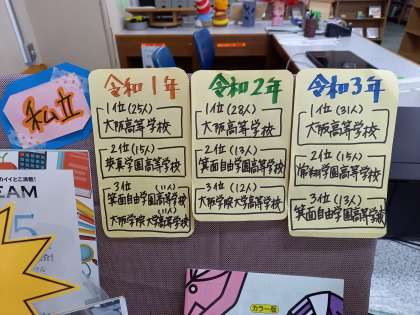 私立
令和1年
1位(25人)
大阪高等学校
2位(15人)
英真学園高等学校
3位(11人)
箕面自由学園高等学校
(11人)
大阪学院大学高等学校
令和2年
1位(28人)
大阪高等学校
2位(13人)
箕面自由学園高等学校
3位(12人)
大阪学院大学高等学校
令和3年
1位(31人)
大阪高等学校
2位(15人)
常翔学園高等学校
3位(13人)
箕面自由学園高等学校
EAM
カラー版